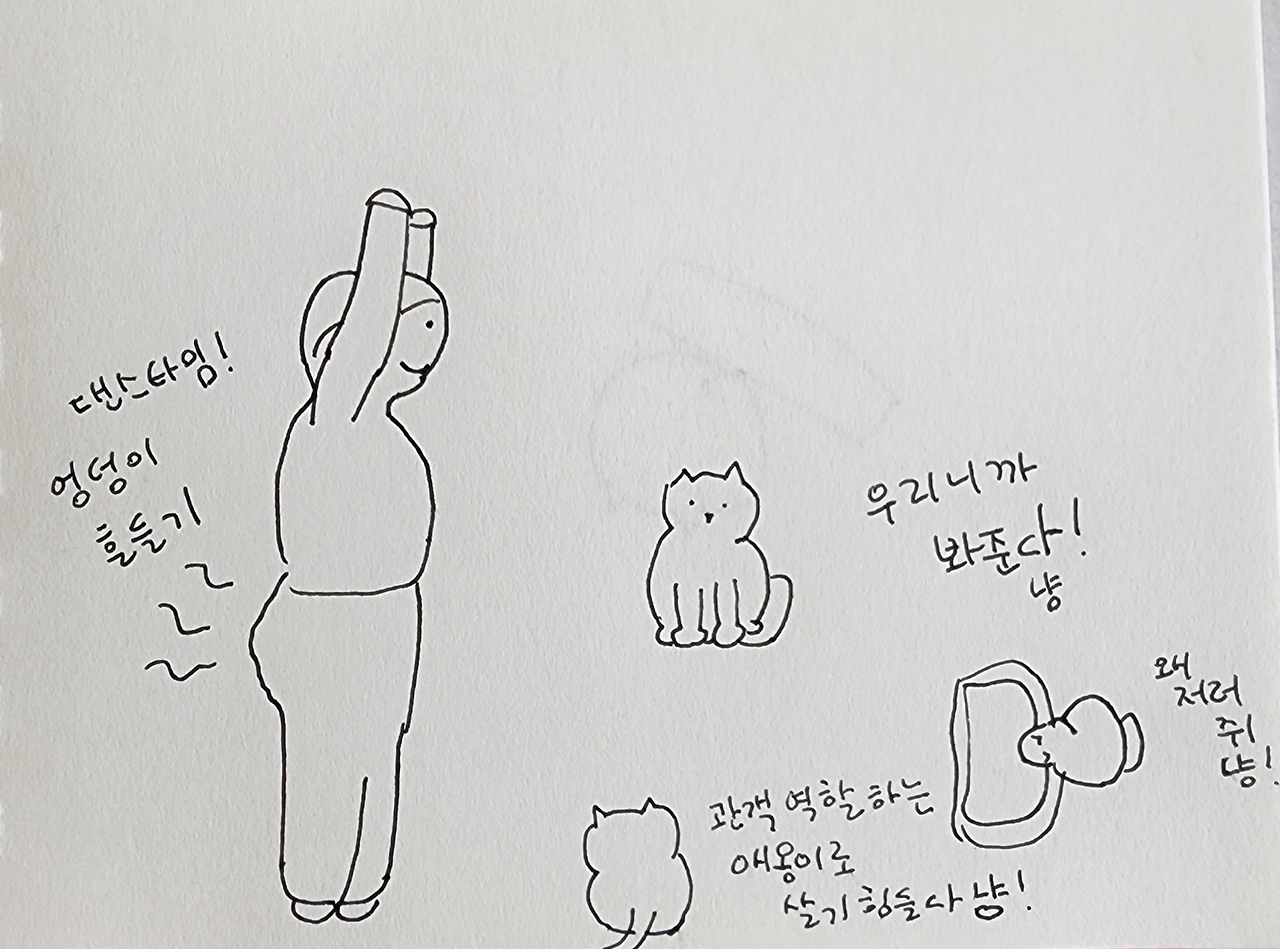 댄스타임!
엉덩이
흔들기
우리니까
봐준다!
냥
왜
저러
쥐
냥!
관객 역할하는
애옹이로
살기 힘들다 냥!